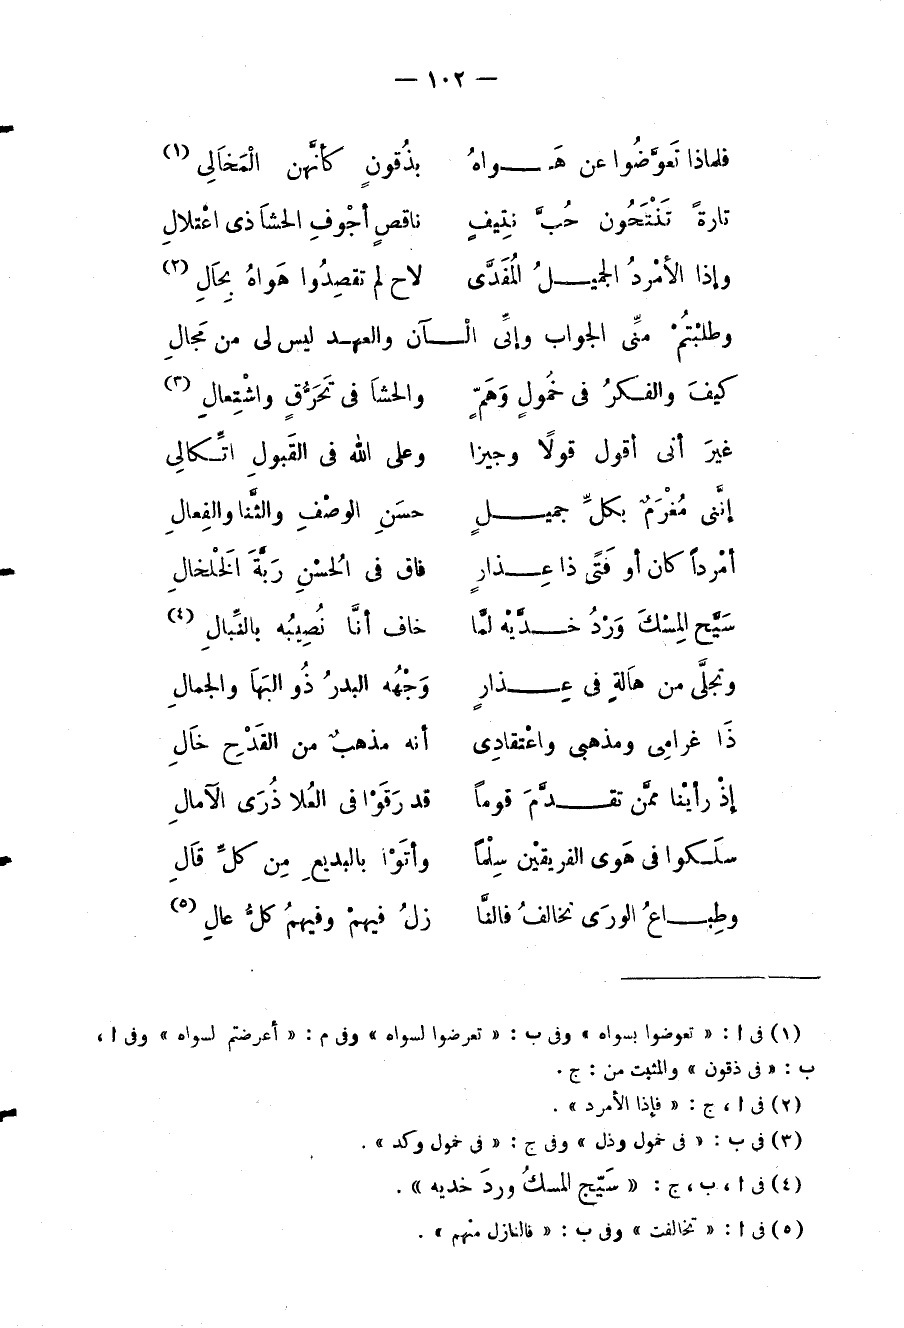 — ١٠٢ —
فلماذا تَعوَّضُوا عن هَـواهُ بذُقونٍ كأنَّهن الْمَخَالِى (١)
تارةً تَنْتَحُون حُبَّ نتِيفٍ ناقصٍ أجْوفِ الحشاَ ذى اعْتلالِ
وإذا الأمْردُ الجميـلُ المُفَدَّى لاح لم تقصِدُوا هَواهُ بِحَالِ (٢)
وطلبْتمُ منِّى الجواب وإنِّى الْـآن والعهـد ليس لى من مَجالِ
كيفَ والفـكرُ فى خمُولٍ وَهَمٍّ والحشاَ فى تَحَرُّقٍ واشْتِعالِ (٣)
غيرَ أنى أقول قولًا وجيزا وعلى الله فى القَبولِ اتِّـكالِى
إنَّنى مُغْرَمٌ بكلِّ جميـلٍ حسَنِ الوصْفِ والثَّنا والفِعالِ
أمْرداً كان أو فَتًى ذا عِـذارٍ فاق فى الُحسْنِ رَبَّةَ الَخلْخالِ
سَيَّح المِسْكَ وَرْدُ خـدَّيْه لمَّا خاف أنَّا نُصِيبُه بالقُبالِ (٤)
وتجلَّى من هَالةٍ فى عِـذارٍ وَجْهُه البدرُ ذُو البَهاَ والجمالِ
ذَا غرامِى ومذهبى واعْتقادِى أنه مذهبٌ من القَدْحِ خَالِ
إذْ رأيْنا ممَّن تقـدَّمَ قوماً قد رَقَوْا فى العُلا ذُرَى الآمالِ
سلَـكوا فى هَوى الفريقيْن سِلْماً وأتَوْا بالبديعِ مِن كلِّ قَالِ
وطِبـاعُ الورَى تخالفُ فالنَّا زلُ فيهمْ وفيهمُ كلُّ عالِ (٥)
(١) فى ا : « تعوضوا بسواه » وفى ب : « تعرضوا لسواه » وفى م : « أعرضتم لسواه » وفى ا ،
ب : « فى ذقون » والمثبت من : ج .
(٢) فى ا ، ج : « فإذا الأمرد » .
(٣) فى ب : « فى خمول وذل » وفى ج : « فى خمول وكد » .
(٤) فى ا ، ب ، ج : « سَيّج المسكُ وردَ خديه » .
(٥) فى ا : « تخالفت » وفى ب : « فالنازل منهم » .